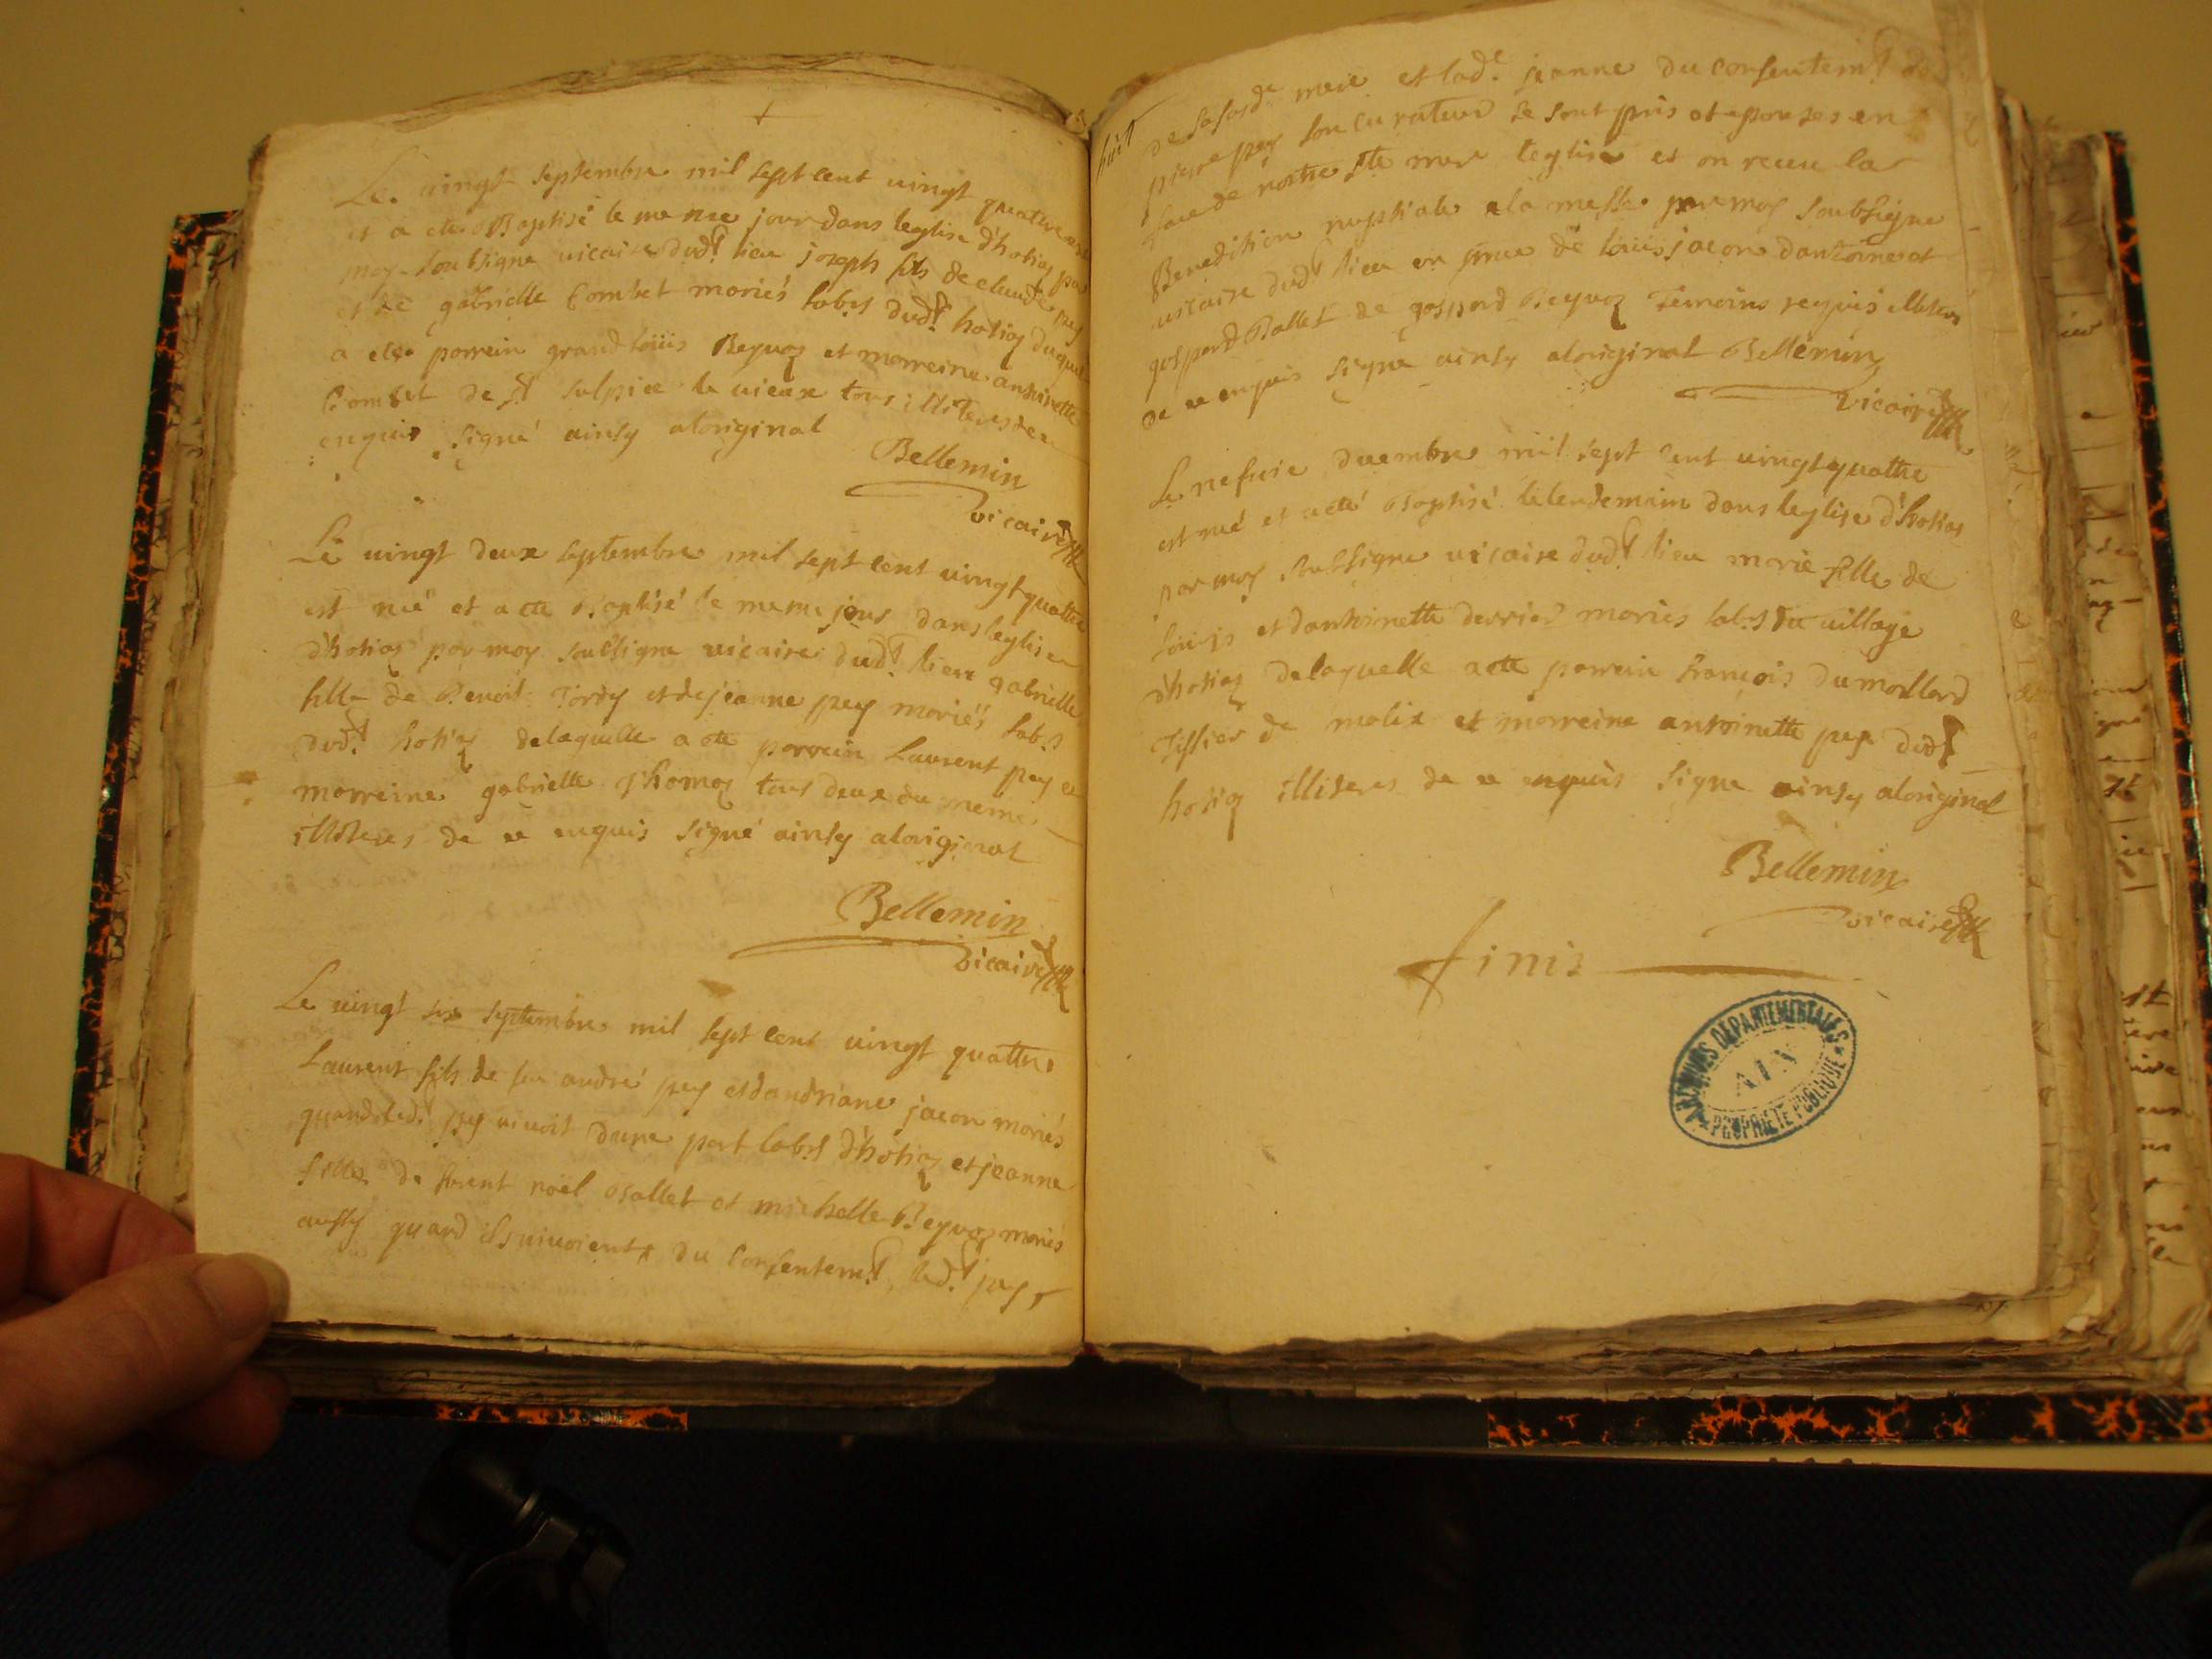 Le vingt septembre mil sept cent vingt quatre est né
et a ete Baptisé le meme jour dans leglise d'hotias par
moy soubsigne vicaire dud.t lieu joseph fils de claude pey
et de gabrielle Combet mariés habs dud.t hotias duquel
a ete parrein grand loüis Beyvoz et marreine anthoinette
Combet de st sulpice le vieux tous illiteres de ce
enquis signé ainsy aloriginal
Bellemin
vicaire
Le vingt deux septembre mil sept cent vingt quattre
est né et a ete Baptisé le meme jour dans leglise
d'hotias par moy soubsigne vicaire dud.t lieu gabrielle
fille de Benoit Tordy et de jeanne pey mariés habs
dud.t hotias delaquelle a ete parrein Laurent pey et
marreine gabrielle Thomas tous deux du meme
illiteres de ce enquis signé ainsy aloriginal
Bellemin
vicaire
Le vingt six septembre mil sept cent vingt quattre
Laurent fils de feu andré pey et dandriane jacon mariés
quand led.t pey vivoit dune part habs d'hotias et jeanne
fille de furent noël Ballet et michelle Beyvoz mariés
aussy quand ils vivoient du consentem.t led.t pey
huit
de sasusde mere et lad.e jeanne du consentem.t de
pierre pey son curateur se sont pris et epouses en
face de nostre ste mere leglise et on receu la
Benediction nuptiale a la messe par moy soubsigne
vicaire dud.t lieu en pnce de loüis jacon dantoine et
gaspard Ballet de gaspard Beyvoz Temoins requis illiteres
de ce enquis signe ainsy aloriginal Bellemin
vicaire
Le nefvie decembre mil sept cent vingt quattre
est né et a eté Baptisé le lendemain dans leglise d'hotias
par moy soubsigne vicaire dud.t lieu marie fille de
loüis et danthoinette derrier mariés habs du village
d'hotias delaquelle a ete parrein françois dumollard
Tissier de malix et marreine anthoinette pey dud.t
hotias illiteres de ce enquis signe ainsy aloriginal
Bellemin
vicaire
finis
ARCHIVES DEPARTEMENTALES
AIN
PROPRIETE PUBLIQUE